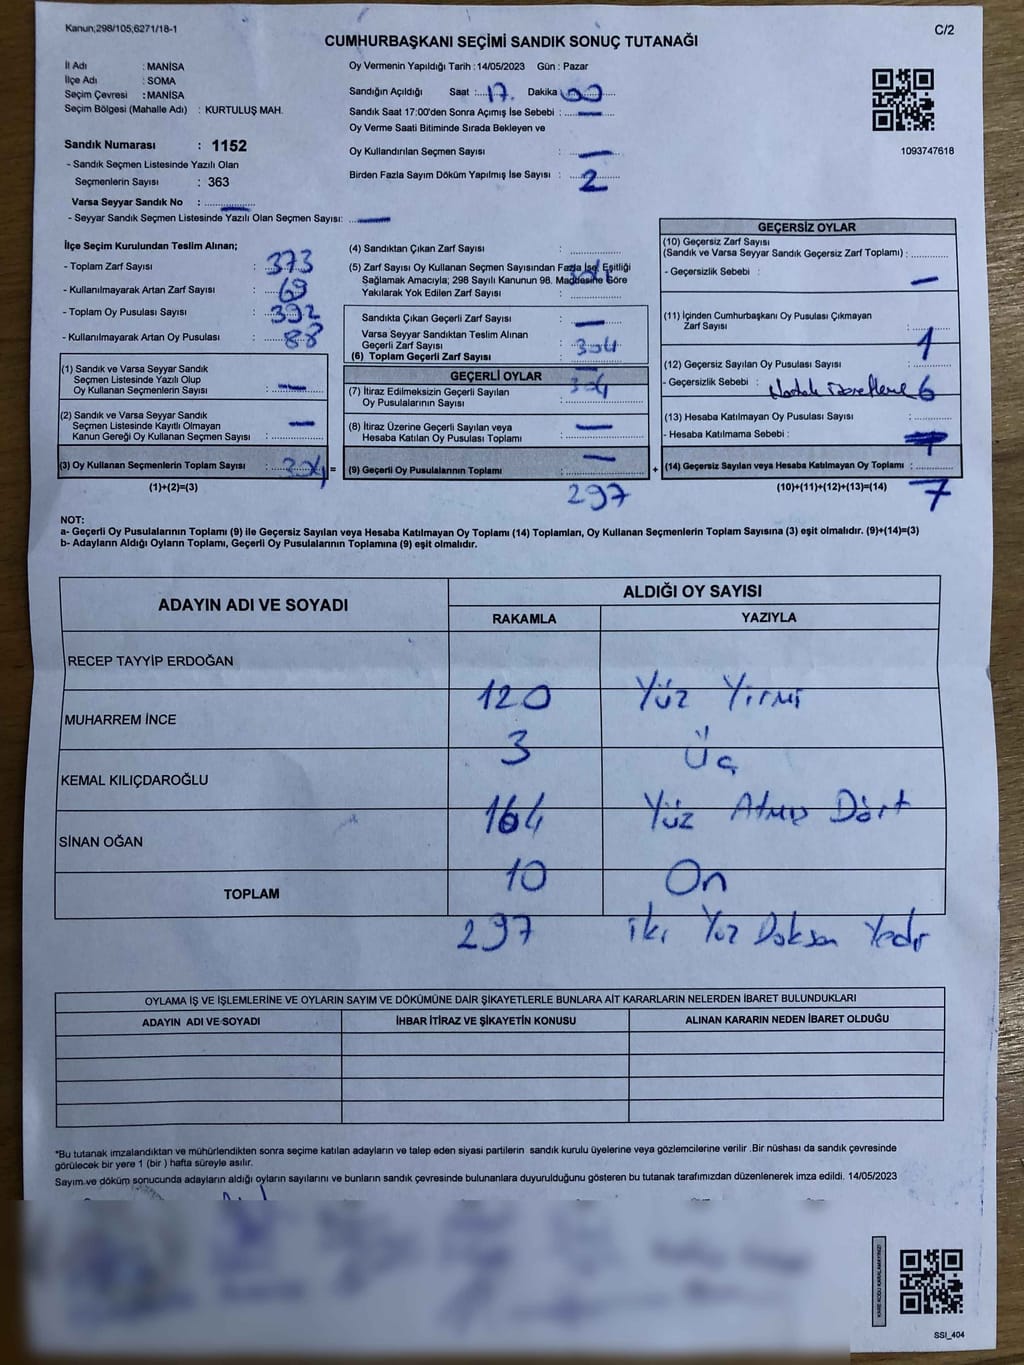 Kanun;298/105,6271/18-1
C/2
CUMHURBAŞKANI SEÇİMİ SANDIK SONUÇ TUTANAĞI
İl Adı : MANİSA
İlçe Adı : SOMA
Seçim Çevresi : MANİSA
Seçim Bölgesi (Mahalle Adı) : KURTULUŞ MAH.
Sandık Numarası : 1152
- Sandık Seçmen Listesinde Yazılı Olan
Seçmenlerin Sayısı : 363
Varsa Seyyar Sandık No : —
- Seyyar Sandık Seçmen Listesinde Yazılı Olan Seçmen Sayısı: —
Oy Vermenin Yapıldığı Tarih : 14/05/2023 Gün : Pazar
Sandığın Açıldığı Saat : 17. Dakika 00
Sandık Saat 17:00'den Sonra Açımış İse Sebebi : —
Oy Verme Saati Bitiminde Sırada Bekleyen ve
Oy Kullandırılan Seçmen Sayısı : —
Birden Fazla Sayım Döküm Yapılmış İse Sayısı : 2
1093747618
İlçe Seçim Kurulundan Teslim Alınan;
- Toplam Zarf Sayısı : 373
- Kullanılmayarak Artan Zarf Sayısı : 69
- Toplam Oy Pusulası Sayısı : 392
- Kullanılmayarak Artan Oy Pusulası : 88
(1) Sandık ve Varsa Seyyar Sandık
Seçmen Listesinde Yazılı Olup
Oy Kullanan Seçmenlerin Sayısı : —
(2) Sandık ve Varsa Seyyar Sandık
Seçmen Listesinde Kayıtlı Olmayan
Kanun Gereği Oy Kullanan Seçmen Sayısı : —
(3) Oy Kullanan Seçmenlerin Toplam Sayısı : 304 =
(1)+(2)=(3)
(4) Sandıktan Çıkan Zarf Sayısı :
304
(5) Zarf Sayısı Oy Kullanan Seçmen Sayısından Fazla İse, Eşitliği
Sağlamak Amacıyla; 298 Sayılı Kanunun 98. Maddesine Göre
Yakılarak Yok Edilen Zarf Sayısı :
Sandıkta Çıkan Geçerli Zarf Sayısı : —
Varsa Seyyar Sandıktan Teslim Alınan
Geçerli Zarf Sayısı : 304
(6) Toplam Geçerli Zarf Sayısı : —
GEÇERLİ OYLAR
304
(7) İtiraz Edilmeksizin Geçerli Sayılan
Oy Pusulalarının Sayısı :
(8) İtiraz Üzerine Geçerli Sayılan veya
Hesaba Katılan Oy Pusulası Toplamı : —
(9) Geçerli Oy Pusulalarının Toplamı : — +
297
GEÇERSİZ OYLAR
(10) Geçersiz Zarf Sayısı
(Sandık ve Varsa Seyyar Sandık Geçersiz Zarf Toplamı) :
- Geçersizlik Sebebi : —
(11) İçinden Cumhurbaşkanı Oy Pusulası Çıkmayan
Zarf Sayısı :
1
(12) Geçersiz Sayılan Oy Pusulası Sayısı :
- Geçersizlik Sebebi : 6
(13) Hesaba Katılmayan Oy Pusulası Sayısı :
- Hesaba Katılmama Sebebi :
(14) Geçersiz Sayılan veya Hesaba Katılmayan Oy Toplamı :
(10)+(11)+(12)+(13)=(14) 7
NOT:
a- Geçerli Oy Pusulalarının Toplamı (9) ile Geçersiz Sayılan veya Hesaba Katılmayan Oy Toplamı (14) Toplamları, Oy Kullanan Seçmenlerin Toplam Sayısına (3) eşit olmalıdır. (9)+(14)=(3)
b- Adayların Aldığı Oyların Toplamı, Geçerli Oy Pusulalarının Toplamına (9) eşit olmalıdır.
ADAYIN ADI VE SOYADI
ALDIĞI OY SAYISI
RAKAMLA YAZIYLA
RECEP TAYYİP ERDOĞAN
120 Yüz Yirmi
MUHARREM İNCE
3 Üç
KEMAL KILIÇDAROĞLU
164 Yüz Atmış Dört
SİNAN OĞAN
10 On
TOPLAM
297 iki Yüz Doksan Yedi
OYLAMA İŞ VE İŞLEMLERİNE VE OYLARIN SAYIM VE DÖKÜMÜNE DAİR ŞİKAYETLERLE BUNLARA AİT KARARLARIN NELERDEN İBARET BULUNDUKLARI
ADAYIN ADI VE SOYADI İHBAR İTİRAZ VE ŞİKAYETİN KONUSU ALINAN KARARIN NEDEN İBARET OLDUĞU
*Bu tutanak imzalandıktan ve mühürlendikten sonra seçime katılan adayların ve talep eden siyasi partilerin sandık kurulu üyelerine veya gözlemcilerine verilir .Bir nüshası da sandık çevresinde
görülecek bir yere 1 (bir ) hafta süreyle asılır.
Sayım ve döküm sonucunda adayların aldığı oyların sayılarını ve bunların sandık çevresinde bulunanlara duyurulduğunu gösteren bu tutanak tarafımızdan düzenlenerek imza edildi. 14/05/2023
KARE KODU KARALAMAYINIZ!
SSI_404